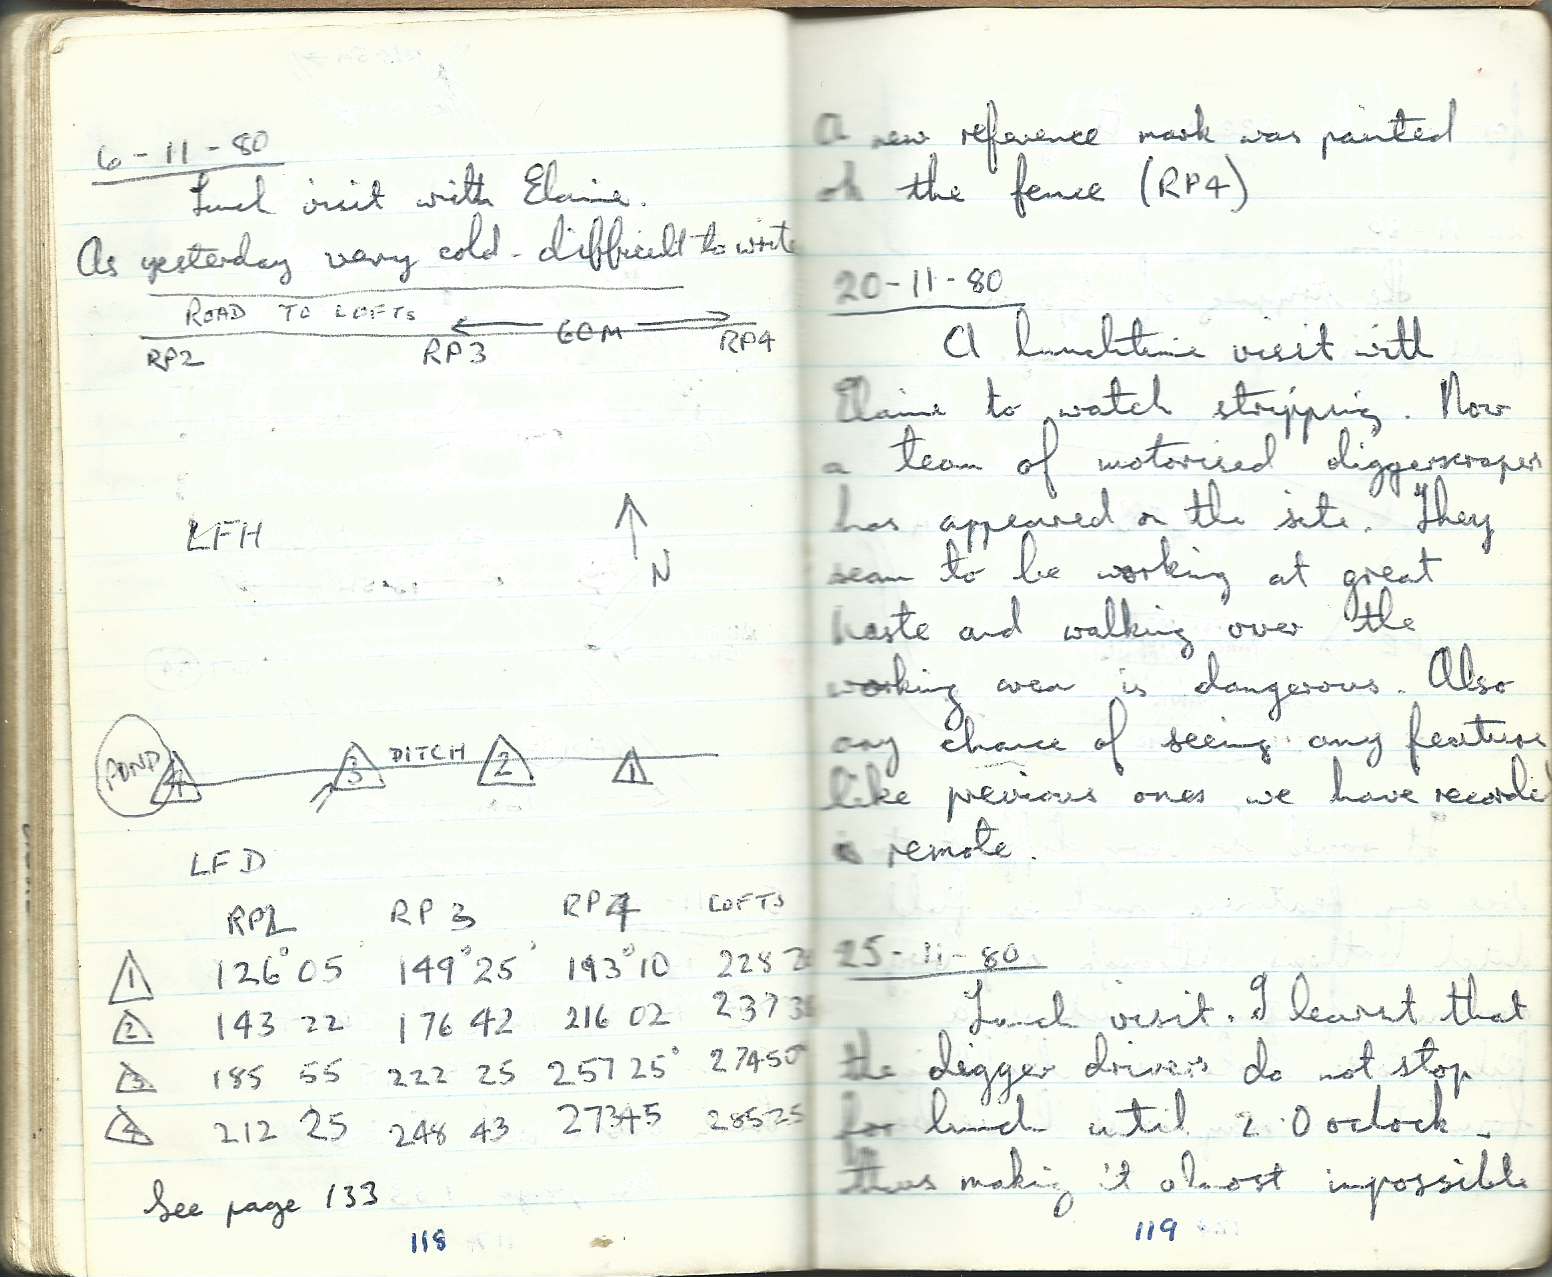 6-11-80
Lunch visit with Elaine.
As yesterday very cold - difficult to write
ROAD TO LOFTS
60M
RP2 RP3 RP4
LFH
N
POND 4 3 DITCH 2 1
LFD
RP2 RP3 RP4 LOFTS
1 126° 05 149° 25' 193° 10 228
2 143 22 176 42 216 02 237
3 185 55 222 25 257 25° 274 50
4 212 25 248 43 273 45 285 25
See page 133
118
A new reference mark was painted
on the fence (RP4)
20-11-80
A lunchtime visit with
Elaine to watch stripping. Now
a team of motorised diggerscrapers
has appeared on the site. They
seam to be working at great
haste and walking over the
working area is dangerous. Also
any chance of seeing any feature
like previous ones we have recorded
is remote.
25-11-80
Lunch visit. I learnt that
the digger drivers do not stop
for lunch until 2.0 oclock
thus making it almost impossible
119